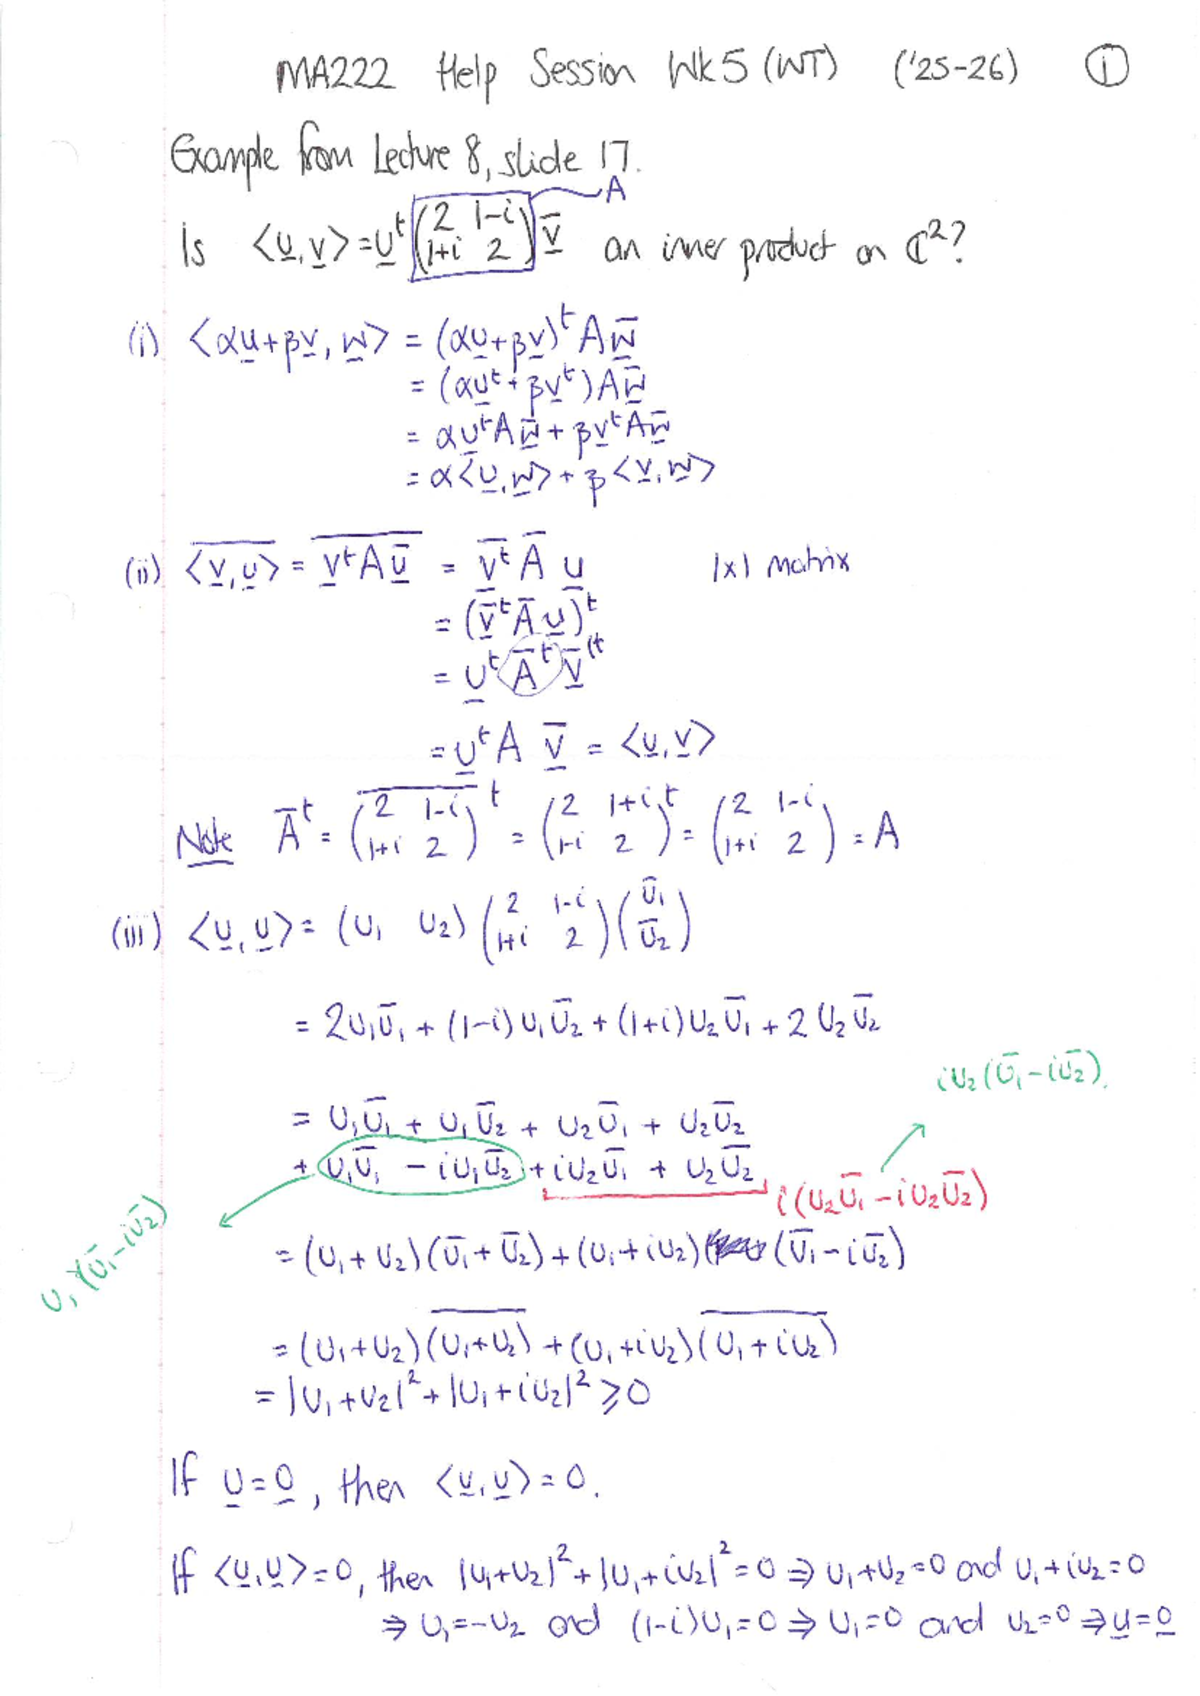 MA222 Help Session Wk5 (WT) ('25-26) ①
Example from Lecture 8, slide 17.
A
Is <u,v> = uᵗ (2 1-i; 1+i 2) v̄ an inner product on ℂ²?
(i) <αu+βv, w> = (αu+βv)ᵗ A w̄
= (αuᵗ + βvᵗ) A w̄
= αuᵗA w̄ + βvᵗA w̄
= α<u,w> + β<v,w>
(ii) \overline{<v,u>} = \overline{vᵗA ū} = v̄ᵗ Ā u 1x1 matrix
= (v̄ᵗ Ā u)ᵗ
= uᵗ Āᵗ v̄ᵗᵗ
= uᵗ A v̄ = <u,v>
Note Āᵗ = \overline{(2 1-i; 1+i 2)}ᵗ = (2 1+i; 1-i 2)ᵗ = (2 1-i; 1+i 2) = A
(iii) <u,u> = (u₁ u₂) (2 1-i; 1+i 2) (ū₁; ū₂)
= 2u₁ū₁ + (1-i)u₁ū₂ + (1+i)u₂ū₁ + 2u₂ū₂
iu₂(ū₁ - iū₂).
= u₁ū₁ + u₁ū₂ + u₂ū₁ + u₂ū₂
+ u₁ū₁ - iu₁ū₂ + iu₂ū₁ + u₂ū₂
i(u₂ū₁ - iu₂ū₂)
u₁(ū₁ - iū₂)
= (u₁+u₂)(ū₁+ū₂) + (u₁+iu₂)(ū₁ - iū₂)
= (u₁+u₂)(\overline{u₁+u₂}) + (u₁+iu₂)(\overline{u₁+iu₂})
= |u₁+u₂|² + |u₁+iu₂|² ⩾ 0
If u = 0, then <u,u> = 0.
If <u,u> = 0, then |u₁+u₂|² + |u₁+iu₂|² = 0 ⇒ u₁+u₂=0 and u₁+iu₂=0
⇒ u₁=-u₂ and (1-i)u₁=0 ⇒ u₁=0 and u₂=0 ⇒ u=0